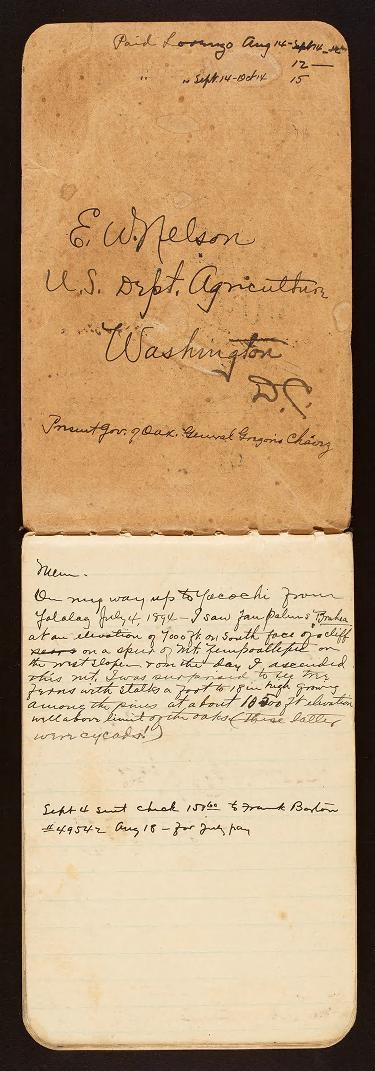 Paid Lorenzo Aug 14 - Sept 14
12 —
" " Sept. 14 - Oct 14 15
E. W. Nelson
U.S. Dept. Agriculture
Washington
D.C.
Present Gov. of Oax. General Gregorio Chávez
Mem.
On my way up to Yacochi from
Yalalag July 4, 1894 - I saw fan palms, Brahea
at an elevation of 7000 ft. on South face of a cliff
on a spur of Mt. Zempoaltepec on
the west slope from the day I ascended
this mt. I was surprised to see
Ferns with stalks a foot to 18 in high growing
among the pines at about 10500 ft elevation
well above limit of the oaks (These latter
were cycads!)
Sept 4 sent check 150.00 to Frank Barton
#49542 Aug 18 - for July pay